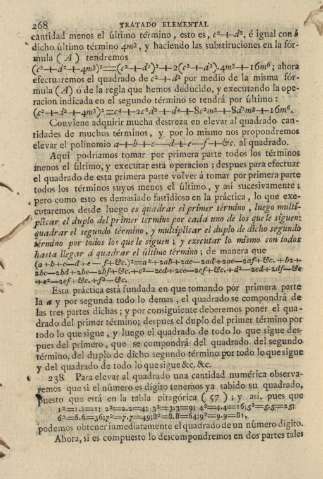 268 TRATADO ELEMENTAL
cantidad menos el último término, esto es, c²+d², é igual con b
dicho último término 4m³, y haciendo las substituciones en la fór-
mula (A) tendremos
(c²+d²+4m³)²=(c²+d²)²+2(c²+d²).4m³+16m⁶; ahora
efectuaremos el quadrado de c²+d² por medio de la misma fór-
mula (A) ó de la regla que hemos deducido, y executando la ope-
racion indicada en el segundo término se tendrá por último:
(c²+d²+4m³)²=c⁴+2c²d²+d⁴+8c²m³+8d²m³+16m⁶.
Conviene adquirir mucha destreza en elevar al quadrado can-
tidades de muchos términos, y por lo mismo nos propondremos
elevar el polinomio a+b+c-d+e-f+&c. al quadrado.
Aquí podriamos tomar por primera parte todos los términos
menos el último, y executar esta operacion; despues para efectuar
el quadrado de esta primera parte volver á tomar por primera parte
todos los términos suyos menos el último, y así sucesivamente;
pero como esto es demasiado fastidioso en la práctica, lo que exe-
cutaremos desde luego es quadrar el primer término, luego multi-
plicar el duplo del primer término por cada uno de los que le siguen:
quadrar el segundo término, y multiplicar el duplo de dicho segundo
término por todos los que le siguen; y executar lo mismo con todos
hasta llegar á quadrar el último término; de manera que
Esta práctica está fundada en que tomando por primera parte
la a y por segunda todo lo demas, el quadrado se compondrá de
las tres partes dichas; y por consiguiente deberemos poner el qua-
drado del primer término; despues el duplo del primer término por
todo lo que sigue, y luego el quadrado de todo lo que sigue des-
pues del primero, que se compondrá: del quadrado del segundo
término, del duplo de dicho segundo término por todo lo que sigue
y del quadrado de todo lo que sigue &c. &c.
238 Para elevar al quadrado una cantidad numérica observa-
remos que si el número es dígito tenemos ya sabido su quadrado,
puesto que está en la tabla pitagórica (57); y así, pues que
1²=1.1=1; 2²=2.2=4; 3²=3.3=9; 4²=4.4=16; 5²=5.5=25;
6²=6.6=36; 7²=7.7=49; 8²=8.8=64; 9²=9.9=81,
podemos obtener inmediatamente el quadrado de un número dígito.
Ahora, si es compuesto lo descompondremos en dos partes tales